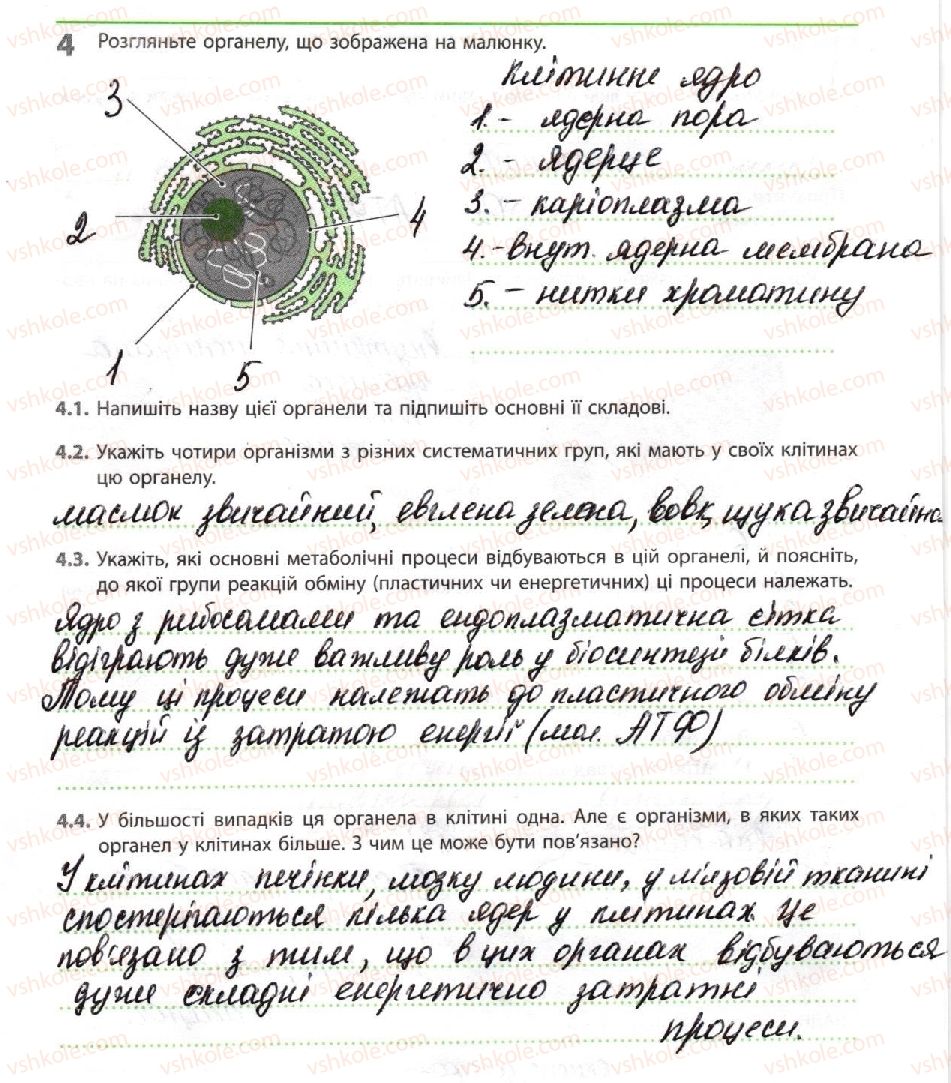 4 Розгляньте органелу, що зображена на малюнку.
Клітинне ядро
1. - ядерна пора
2. - ядерце
3. - каріоплазма
4. - внут. ядерна мембрана
5. - нитки хроматину
3
2
4
1
5
4.1. Напишіть назву цієї органели та підпишіть основні її складові.
4.2. Укажіть чотири організми з різних систематичних груп, які мають у своїх клітинах
цю органелу.
маслюк звичайний, евглена зелена, вовк, щука звичайна
4.3. Укажіть, які основні метаболічні процеси відбуваються в цій органелі, й поясніть,
до якої групи реакцій обміну (пластичних чи енергетичних) ці процеси належать.
Ядро з рибосомами та ендоплазматична сітка
відіграють дуже важливу роль у біосинтезі білків.
Тому ці процеси належать до пластичного обміну
реакцій із затратою енергії (мол. АТФ)
4.4. У більшості випадків ця органела в клітині одна. Але є організми, в яких таких
органел у клітинах більше. З чим це може бути пов'язано?
У клітинах печінки, мозку людини, у м'язовій тканині
спостерігаються кілька ядер у клітинах. Це
пов'язано з тим, що в цих органах відбуваються
дуже складні енергетично затратні
процеси.